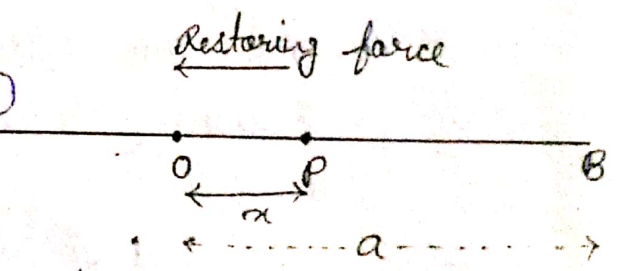 Restoring force
O P B
x
a